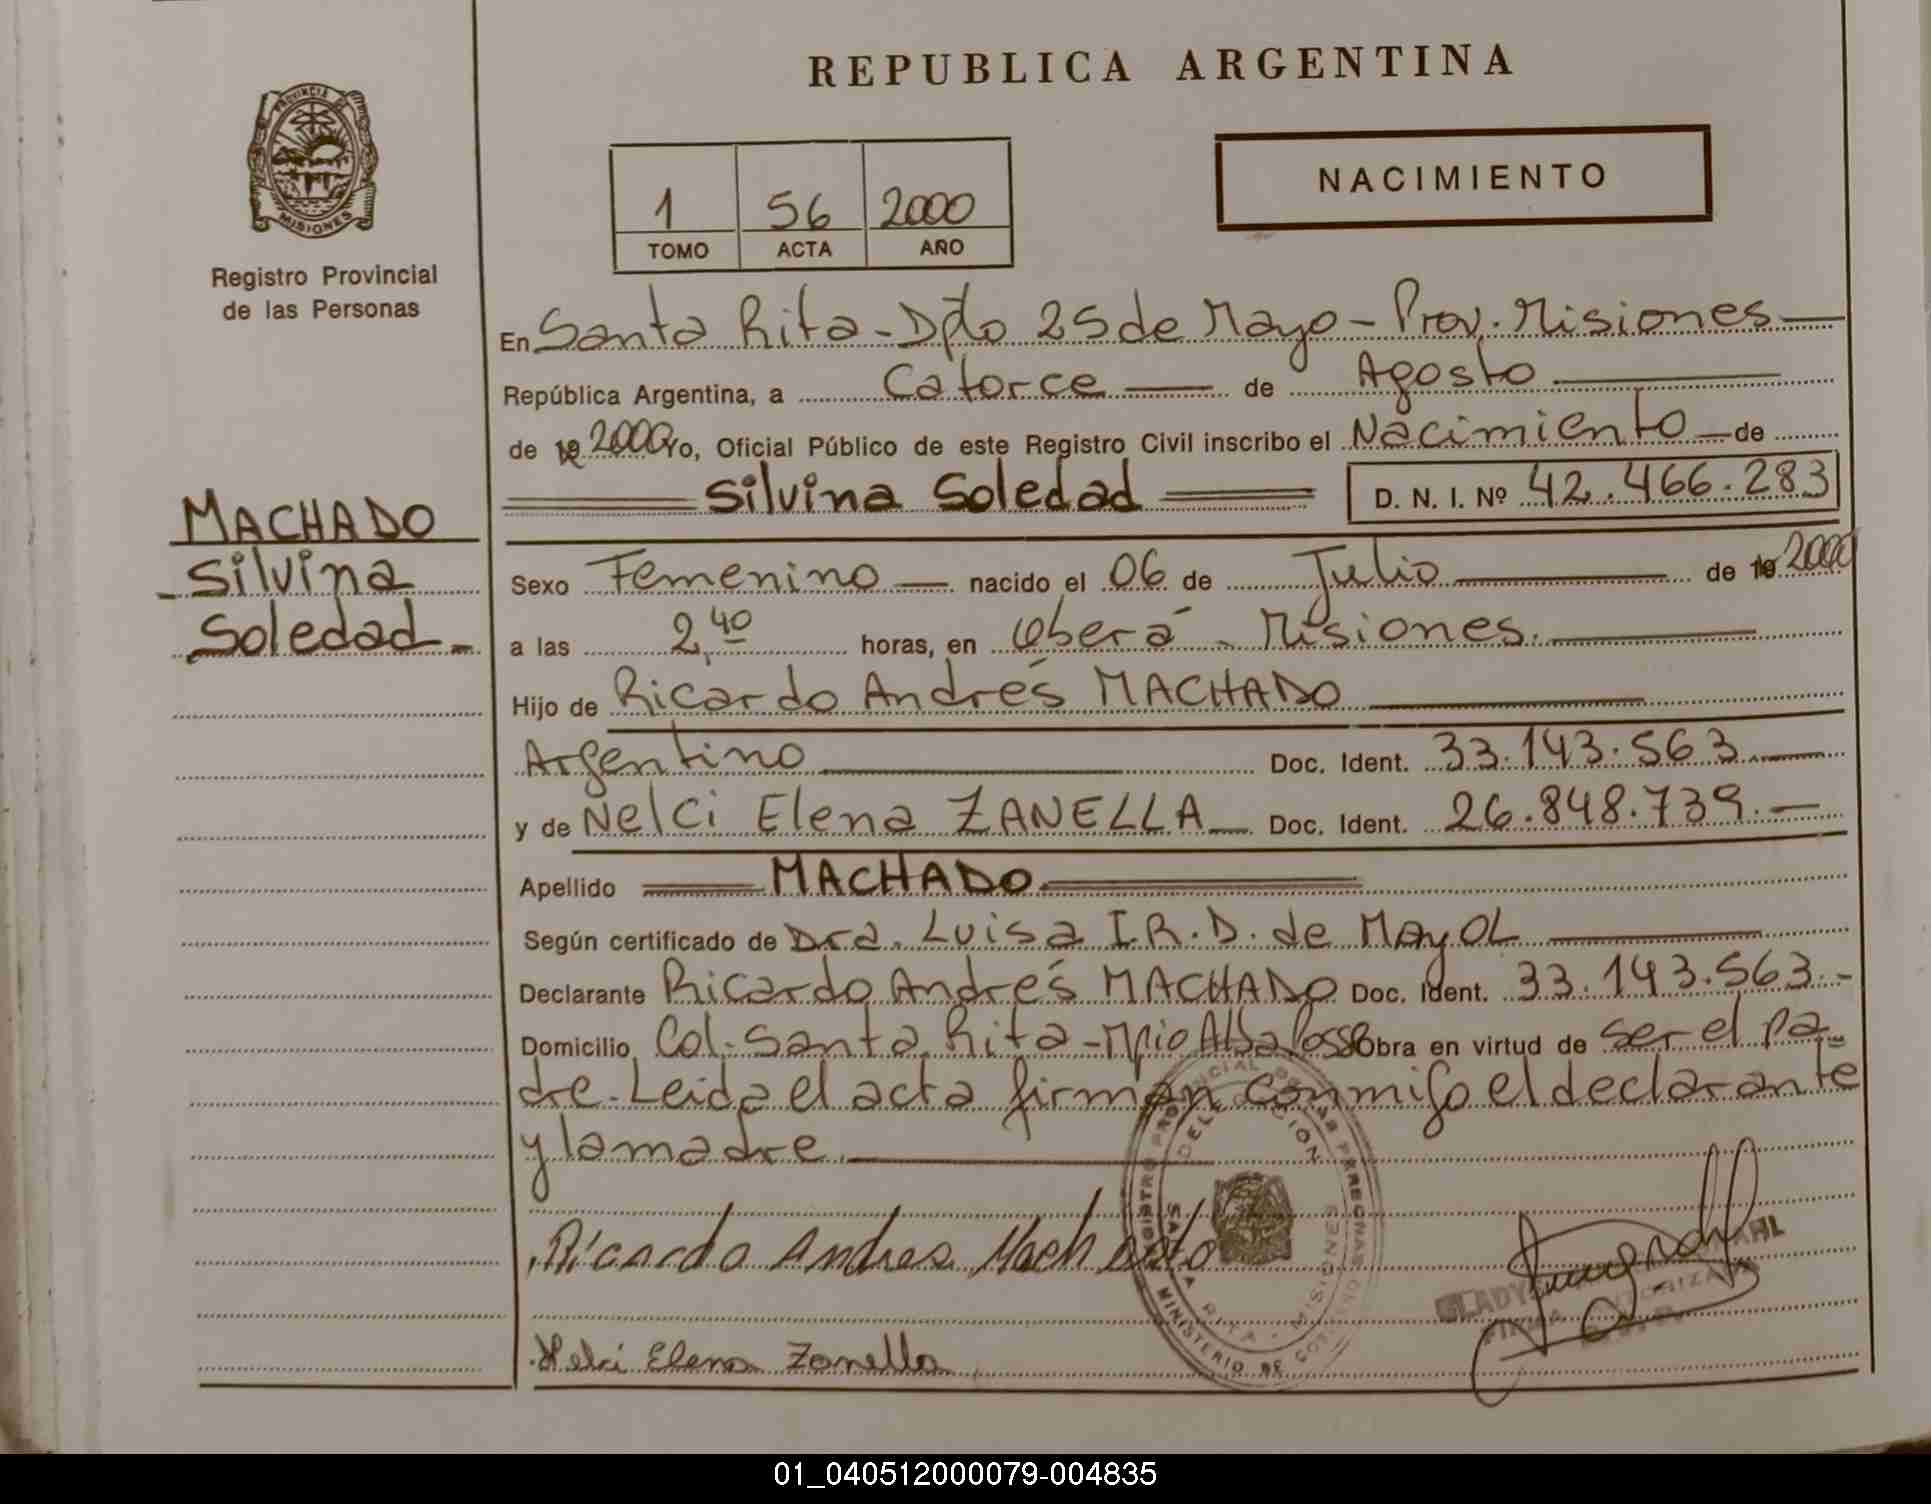 REPUBLICA ARGENTINA
PROVINCIA DE
MISIONES
Registro Provincial
de las Personas
1 56 2000
TOMO ACTA AÑO
NACIMIENTO
En Santa Rita - Dpto 25 de Mayo - Prov. Misiones
República Argentina, a Catorce de Agosto
de 19 2000 yo, Oficial Público de este Registro Civil inscribo el Nacimiento de
Silvina Soledad D. N. I. Nº 42.466.283
MACHADO
Silvina
Soledad
Sexo Femenino nacido el 06 de Julio de 19 2000
a las 2,40 horas, en Oberá - Misiones.
Hijo de Ricardo Andrés MACHADO
Argentino Doc. Ident. 33.143.563
y de Nelci Elena ZANELLA Doc. Ident. 26.848.739.
Apellido MACHADO
Según certificado de Dra. Luisa I.R.D. de MAyOL
Declarante Ricardo Andrés MACHADO Doc. Ident. 33.143.563.-
Domicilio Col. Santa Rita - Mpio Alba Posse Obra en virtud de ser el pa-
dre. Leida el acta firman conmigo el declarante
y la madre.
REGISTRO PROVINCIAL DE LAS PERSONAS
DELEGACION
SANTA RITA - MISIONES
MINISTERIO DE GOBIERNO
Ricardo Andres Machado
GLADYS
FIRMA AUTORIZADA
Nelci Elena Zanella
01_040512000079-004835